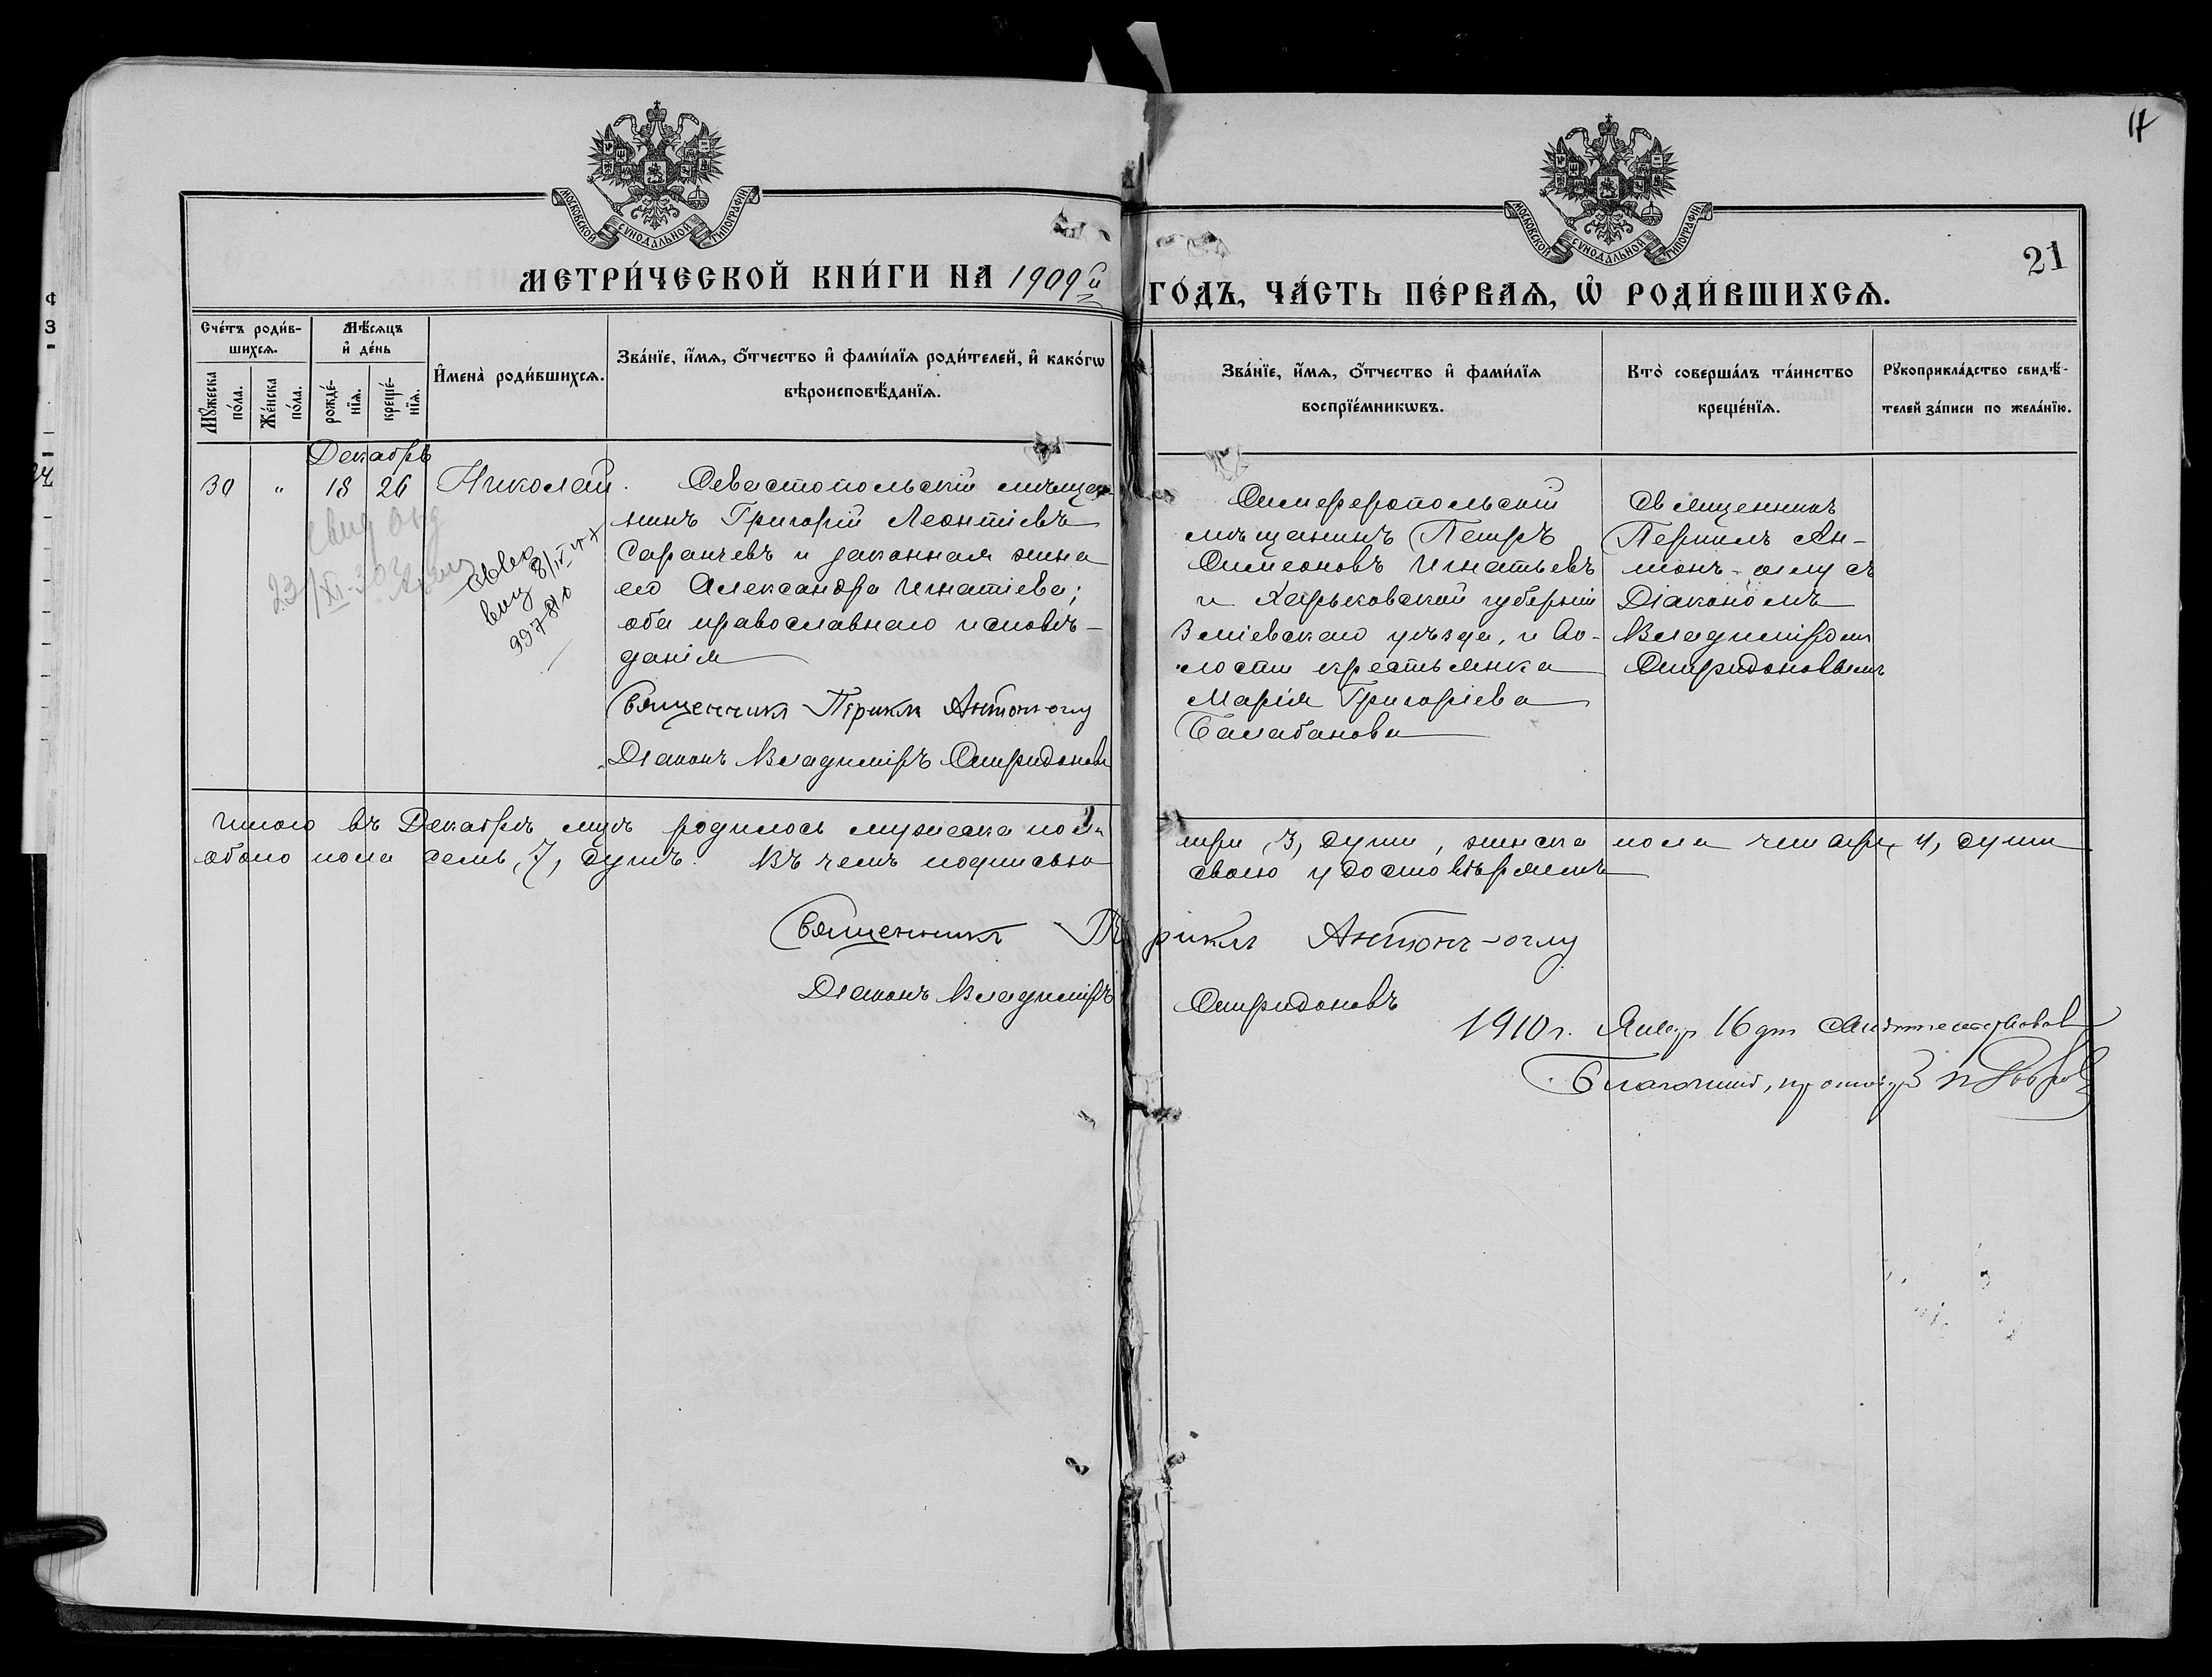 17
МОСКОВСКОЙ СѴНОДАЛЬНОЙ ТИПОГРАФІИ
МОСКОВСКОЙ СѴНОДАЛЬНОЙ ТИПОГРАФІИ
21
МЕТРИ́ЧЕСКОЙ КНИ́ГИ НА 1909й ГО́ДЪ, ЧА́СТЬ ПЕ́РВАѦ, Ѡ҆ РОДИ́ВШИХСѦ.
Сче́тъ роди́в-
шихсѧ.
Мꙋ́жеска по́ла.
Же́нска по́ла.
Мѣ́сѧцъ
и҆ де́нь
рожде́-
нїѧ.
креще́-
нїѧ.
И҆мена̀ роди́вшихсѧ.
Зва́нїе, и҆́мѧ, ѻ҆́тчество и҆ фами́лїѧ роди́телей, и҆ како́гѡ
вѣроисповѣ́данїѧ.
Зва́нїе, и҆́мѧ, ѻ҆́тчество и҆ фами́лїѧ
воспрїе́мникѡвъ.
Кто̀ соверша́лъ та́инство
креще́нїѧ.
Рꙋкоприкла́дство свидѣ́-
телей за́писи по жела́нїю.
Декабрь
30 " 18 26 Николай.
Севастопольскій мѣща-
нинъ Григорій Леонтіевъ
Саранчевъ и законная жена
его Александра Игнатіева;
оба православнаго исповѣ-
данія
Священникъ Периклъ Антонъ-оглу
Діаконъ Владиміръ Спиридоновъ
Симферопольскій
мѣщанинъ Петръ
Симеоновъ Игнатьевъ
и Харьковской губерніи
Зміевскаго уѣзда, и во-
лости крестьянка
Марія Григоріева
Балабанова
Священникъ
Периклъ Ан-
тонъ-оглу съ
Діакономъ
Владиміромъ
Спиридоновымъ
Итого въ Декабрѣ мцѣ родилось мужеска пола три, 3, души, женска пола четыре, 4, души
обоего пола семь, 7, душъ. Въ чемъ подписью своею удостовѣряемъ
Священникъ Периклъ Антонъ-оглу
Діаконъ Владиміръ Спиридоновъ
1910 г. Январ 16 дня
Благочинный, протоіерей